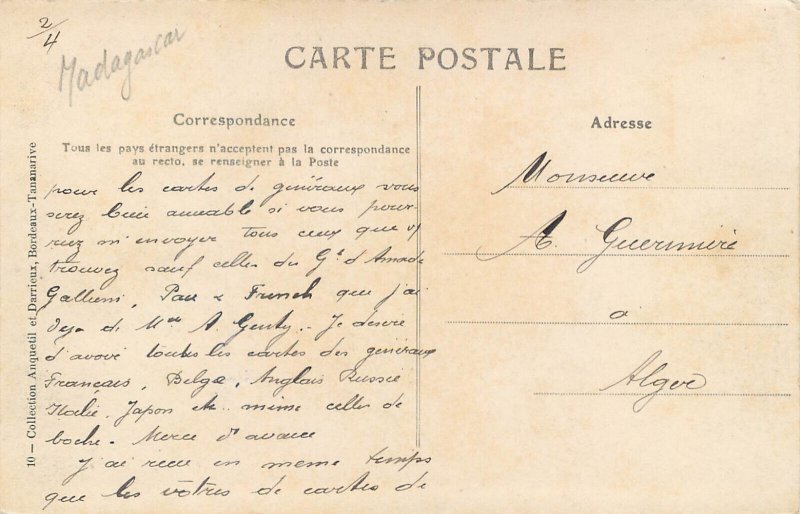 2/4
Madagascar
CARTE POSTALE
Correspondance
Tous les pays étrangers n'acceptent pas la correspondance
au recto, se renseigner à la Poste
10 — Collection Anquetil et Darrieux, Bordeaux-Tananarive
pour les cartes de généraux vous
serez bien aimable si vous pour-
riez m'envoyer tous ceux que v/
trouvez sauf celles du Gal d'Amade
Gallieni, Pau & French que j'ai
deja de Mme A. Genty. - Je desire
d'avoir toutes les cartes des généraux
Francais, Belge, Anglais Russie
Italie, Japon etc.. même celles de
boche. Merci d'avance
J'ai recu en meme temps
que les vôtres de cartes de
Adresse
Monsieur
A. Guermière
a
Alger